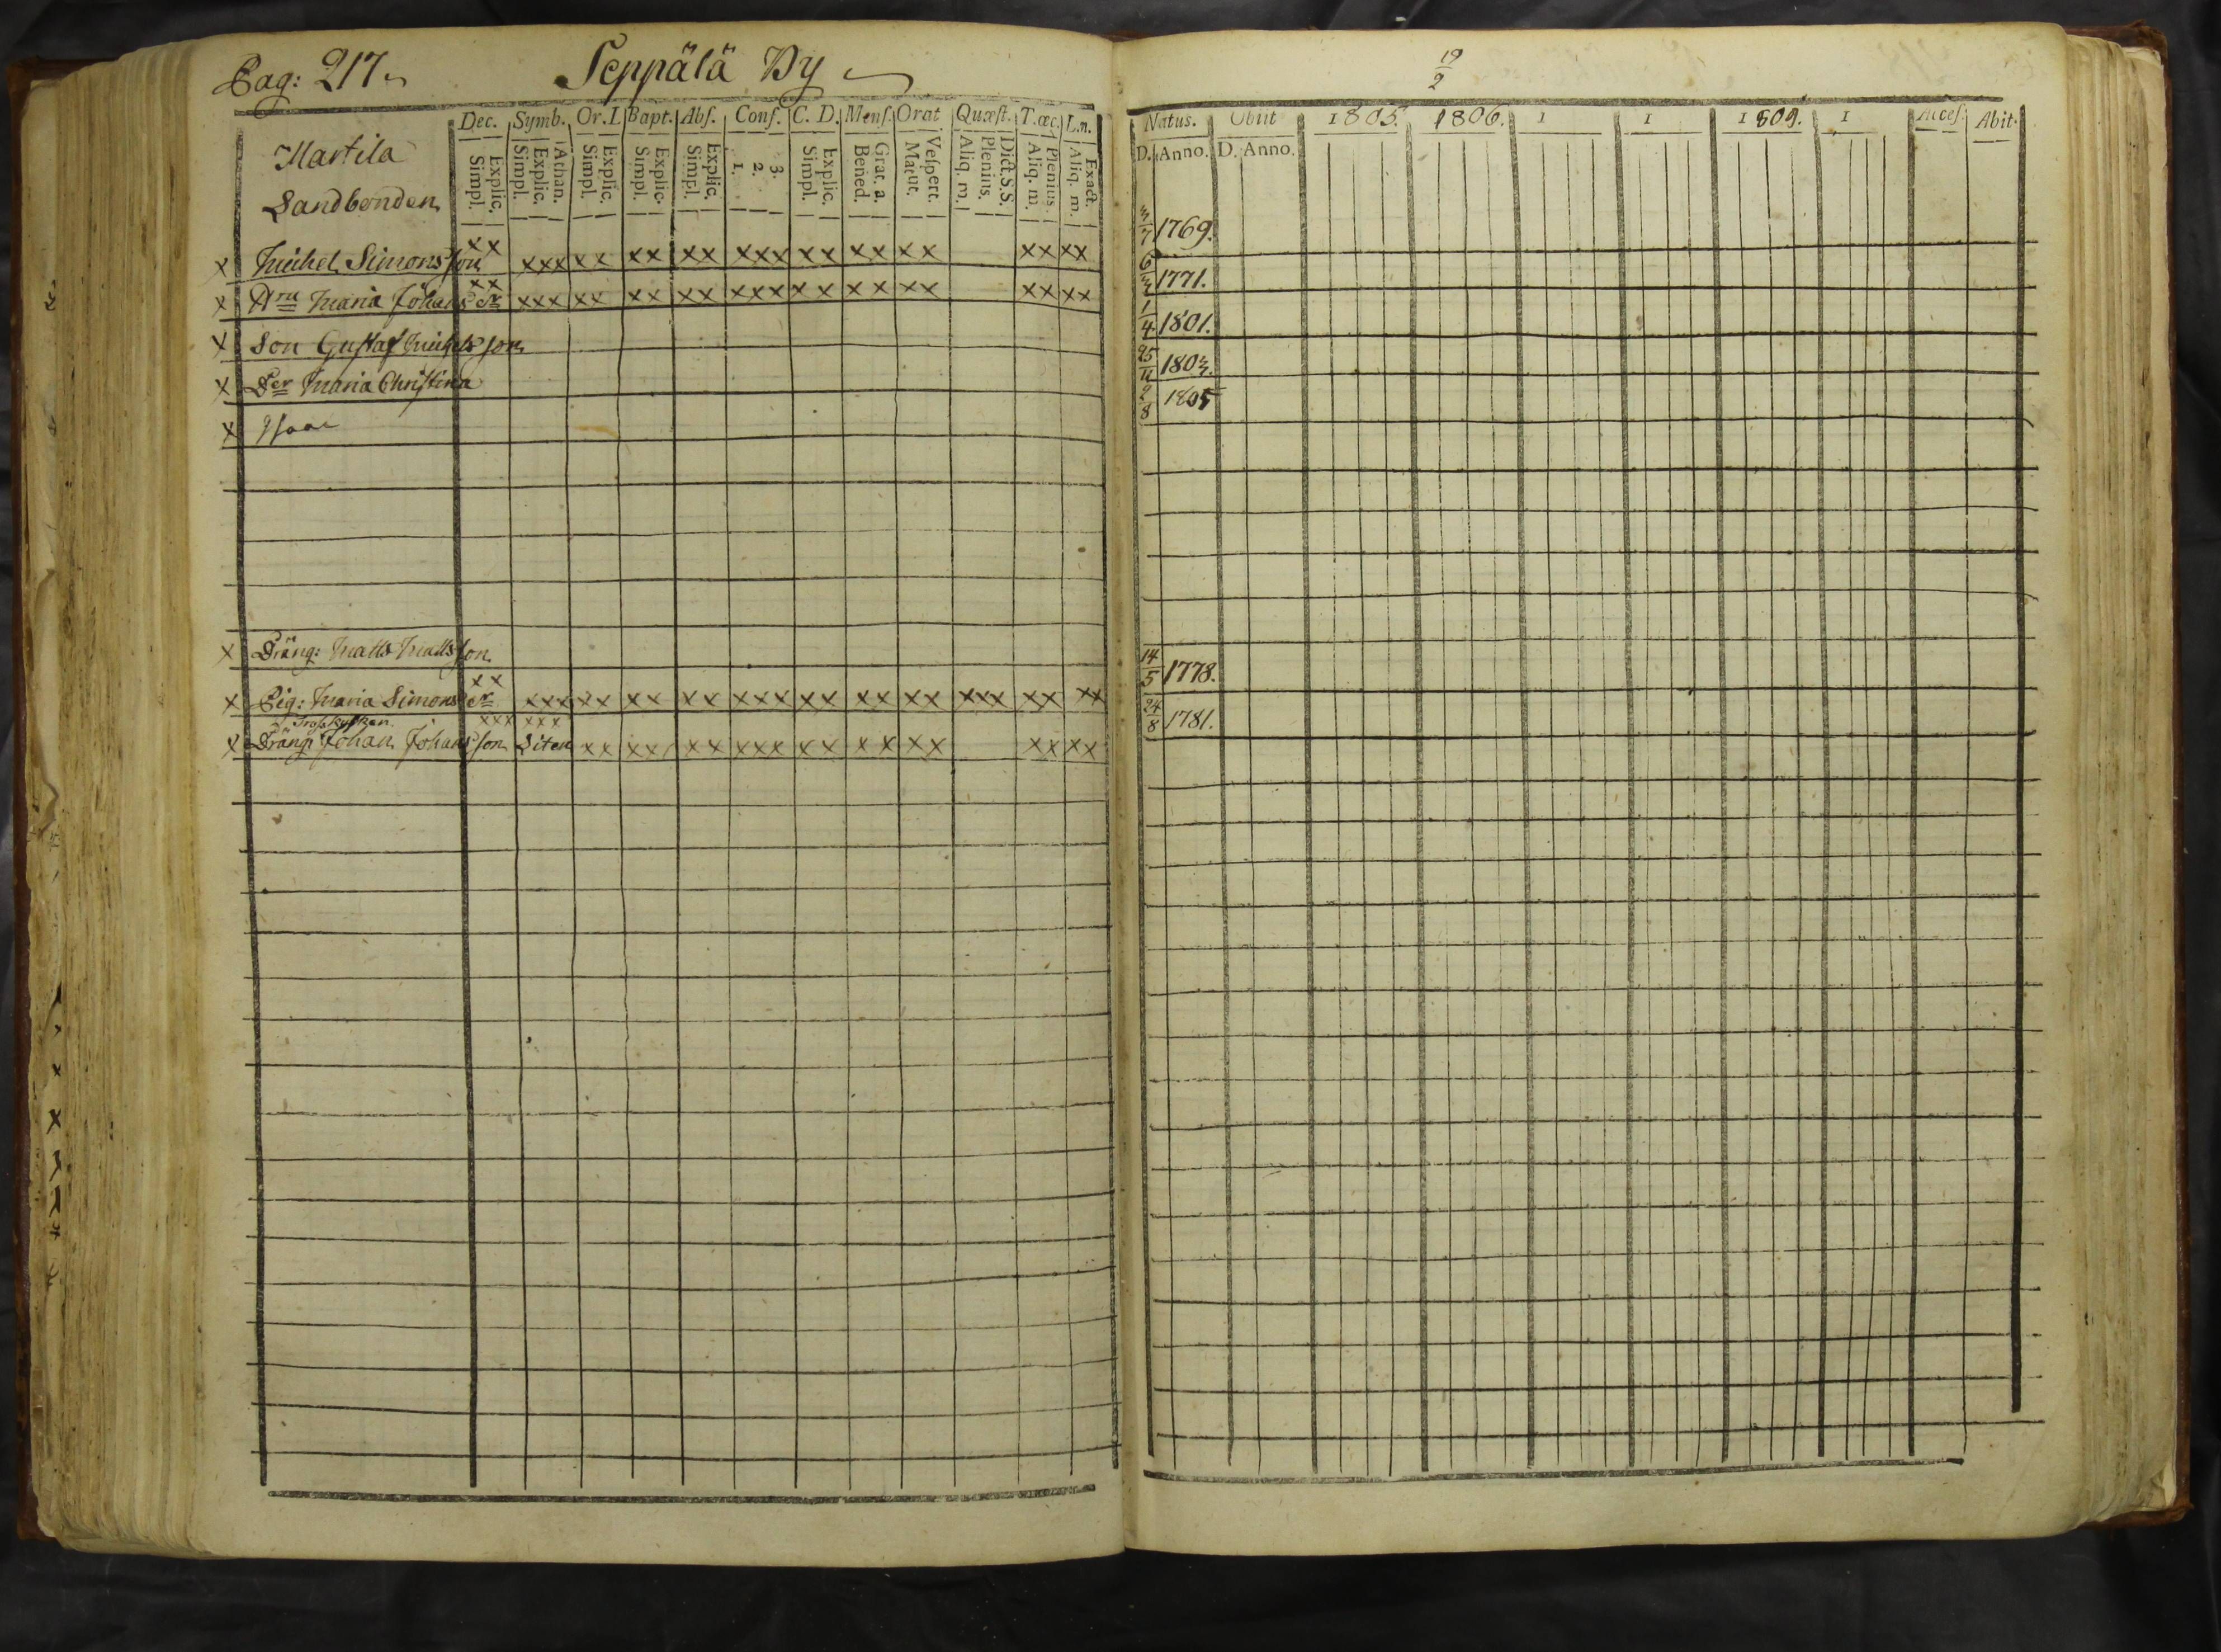 Pag: 217.
Seppälä By
Martila
Landbonden
Dec. Symb. Or.I. Bapt. Abs. Conf. C. D. Mens. Orat Quæst. T.œc. L.n.
Explic. Simpl. Athan. Explic. Simpl. Explic. Simpl. Explic. Simpl. Explic. Simpl. 3. 2. 1. Explic. Simpl. Grat. a. Bened. Vespert. Matut. Dict.S.S. Plenius. Aliq. m. Plenius. Aliq. m. Exact. Aliq. m.
x Michel Simonsson xx xxx xx xx xx xxx xx xx xx xx xx
x Hru Maria Johans dr xx xxx xx xx xx xxx xx xx xx xx xx
x Son Gustaf Michelsson
x Der Maria Christina
x Isaac
x Dräng: Matts Mattsson
x Pig: Maria Simons dr xx xxx xx xx xx xxx xx xx xx xxx xx xx
xxx xxx
x Dräng Johan Johansson Liten xx xx xx xxx xx xx xx xx xx
19/2
Natus. Obiit 1805. 1806. 1 1 1809. 1 Acces. Abit.
D. Anno. D. Anno.
3/7 1769.
6/3 1771.
1/4 1801.
25/11 1803.
2/8 1805
14/5 1778.
24/8 1781.